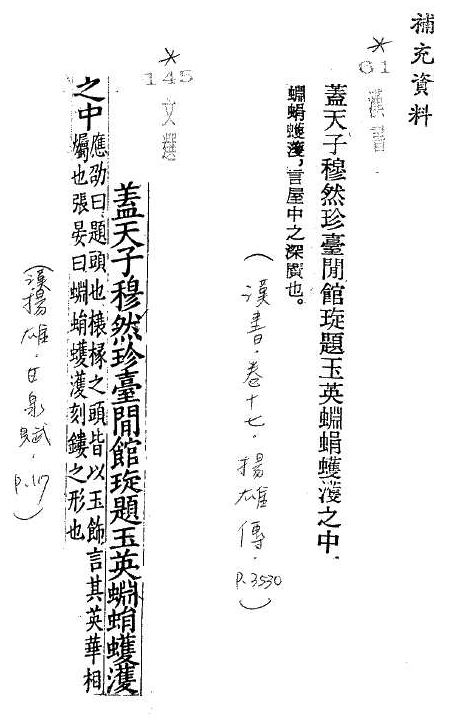 補充資料
*
61 漢書
蓋天子穆然珍臺閒館琁題玉英蜵蜎蠖濩之中，
蜵蜎蠖濩，言屋中之深廣也。
（漢書．卷十七．揚雄傳．P.3530）
*
145 文選
蓋天子穆然珍臺閒館琁題玉英蜵蜎蠖濩
之中
應劭曰題頭也榱椽之頭皆以玉飾言其英華相
爥也張晏曰蜵蜎蠖濩刻鏤之形也
（漢揚雄．甘泉賦．P.117）